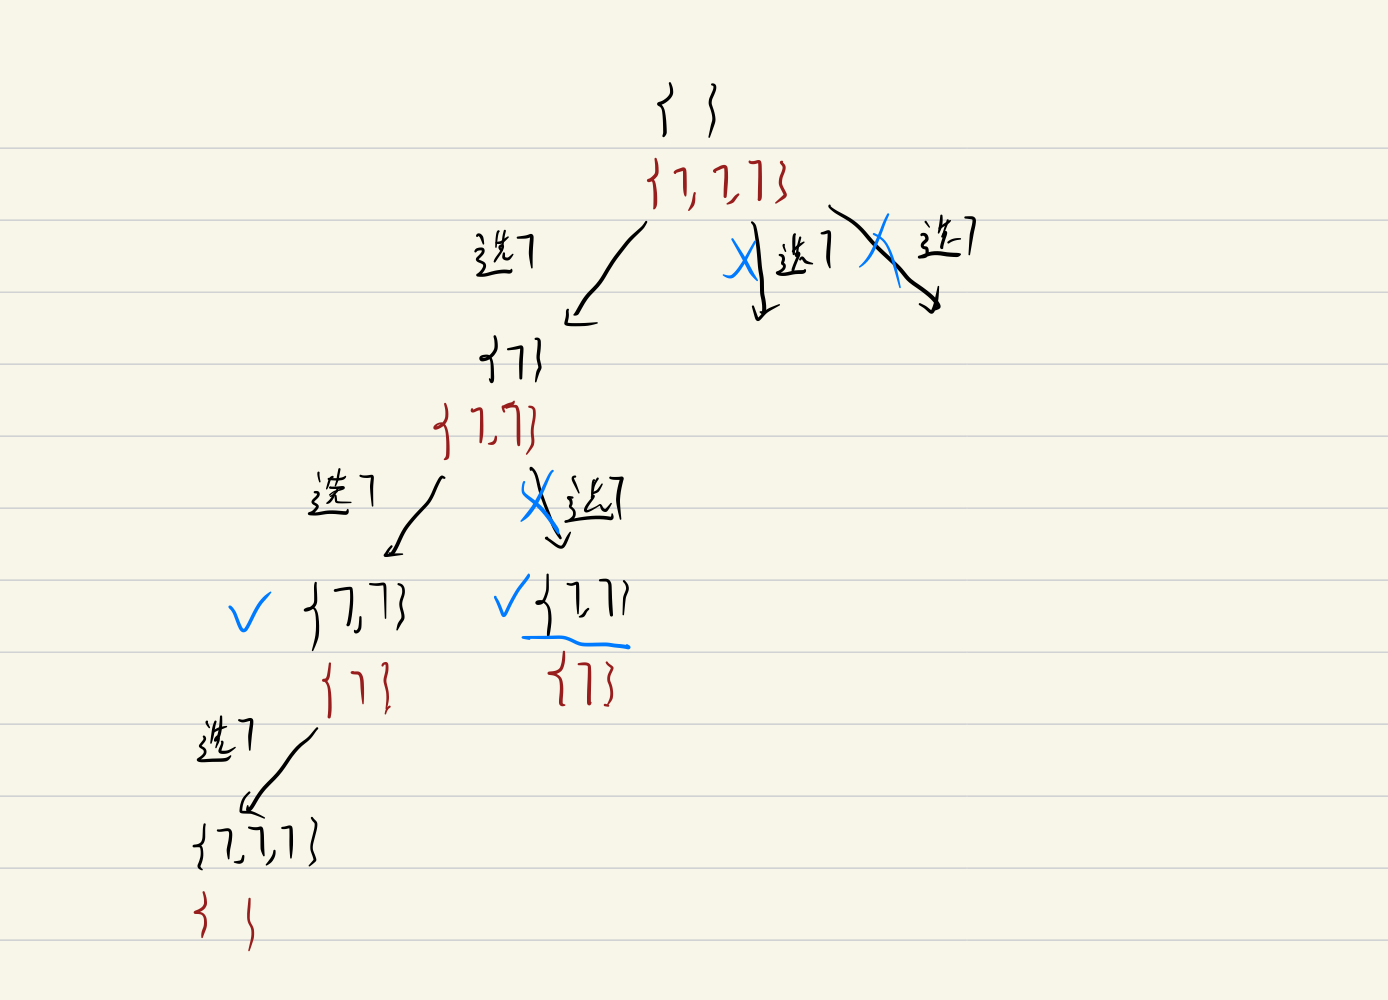 { }
{7, 7, 7}
选7 选7 选7
{7}
{7,7}
选7 选7
{7,7} {7,7}
{7} {7}
选7
{7,7,7}
{ }